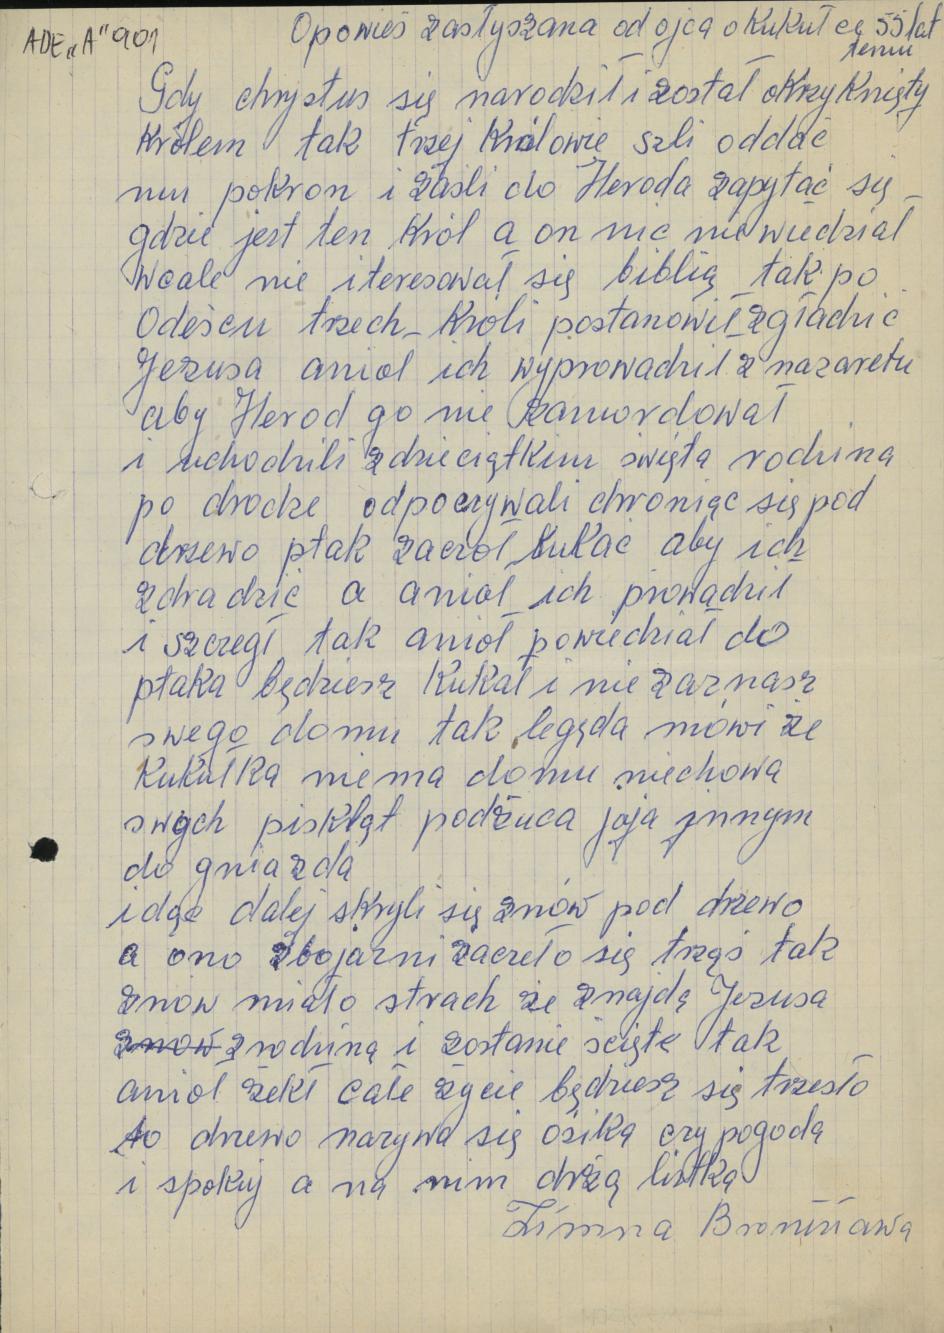 ADE „A" 901
Opowieś zasłyszana od ojca o kukułce 55 lat
temu
Gdy chrystus się narodził i został okrzyknięty
królem tak trzej królowie szli oddać
mu pokron i zaśli do Heroda zapytać się
gdzie jest ten król a on nic nie wiedział
wcale nie iteresował się biblią tak po
Odeścu trzech króli postanowił zgładzić
Jezusa anioł ich wyprowadził z nazaretu
aby Herod go nie zamordował
i uchodzili z dzieciątkim święta rodzina
po drodze odpoczywali chroniąc się pod
drzewo ptak zaczoł kukać aby ich
zdradzić a anioł ich prowadził
i szczegł tak anioł powiedział do
ptaka będziesz kukał i nie zaznasz
swego domu tak legęda mówi że
kukułka niema domu niechowa
swych piskląt podżuca jaja innym
do gniazda
idąc dalej skryli się znów pod drzewo
a ono zbojaźni zaczeło się trząś tak
znow miało strach że znajdą Jezusa
znow z rodziną i zostanie ścięte tak
anioł żekł całe życie będziesz się trzesło
to drzewo nazywa się osika czy pogoda
i spokuj a na nim drżą listka
Zimna Bronisława